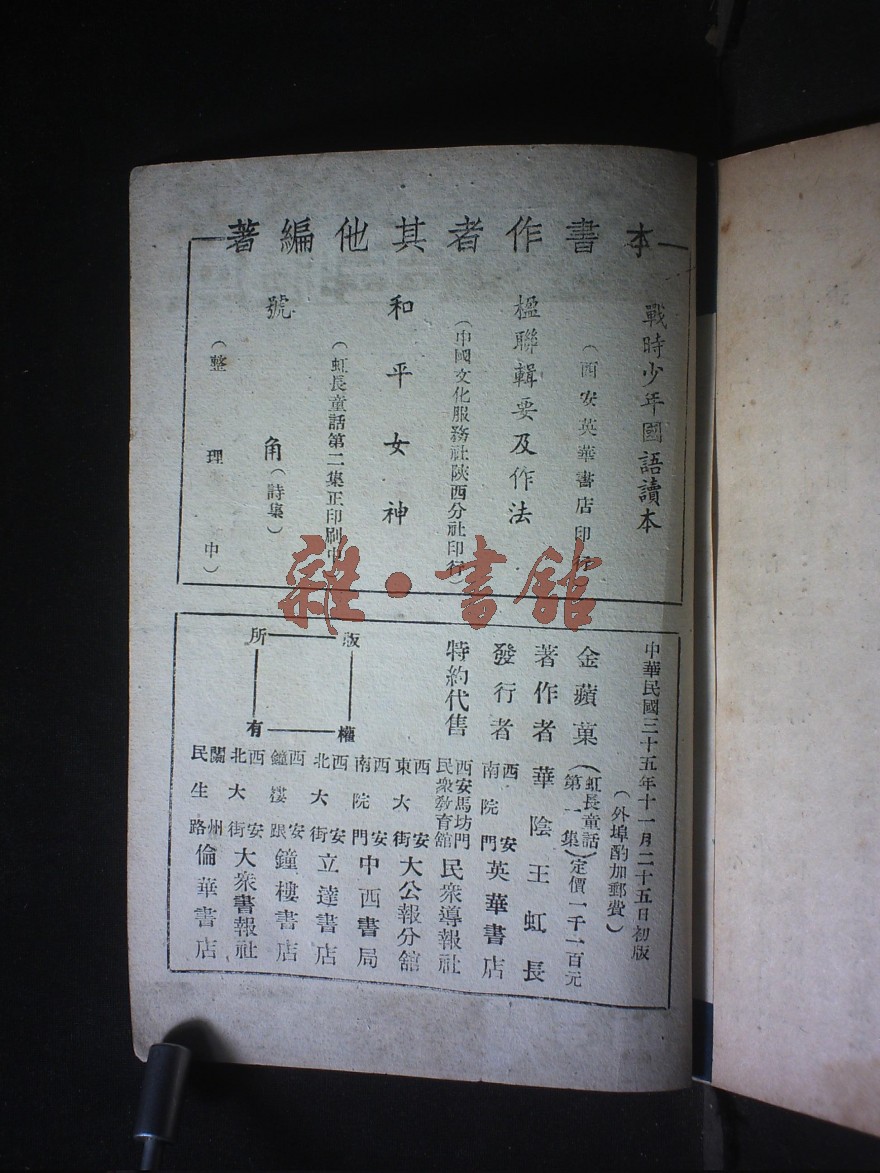 本書作者其他編著
戰時少年國語讀本
（西安英華書店印行）
楹聯輯要及作法
（中國文化服務社陝西分社印行）
和平女神
（虹長童話第二集正印刷中）
號角（詩集）
（整理中）
中華民國三十五年十一月二十五日初版
（外埠酌加郵費）
金蘋菓（虹長童話第一集）定價一千一百元
著作者 華陰王虹長
發行者 西安南院門 英華書店
特約代售
西安馬坊門民衆敎育館 民衆導報社
西安東大街 大公報分舘
西安南院門 中西書局
西安北大街 立達書店
西安鐘樓跟 鐘樓書店
西安北大街 大衆書報社
蘭州民生路 倫華書店
版權所有
雜·書館